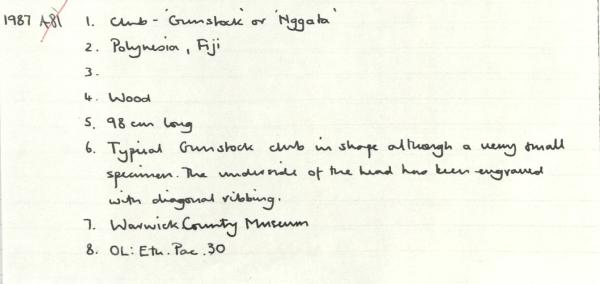 1987 A81 1. Club - 'Gunstock' or 'Nggata'
2. Polynesia, Fiji
3.
4. Wood
5. 98 cm long
6. Typical Gunstock club in shape although a very small
specimen. The underside of the head has been engraved
with diagonal ribbing.
7. Warwick County Museum
8. OL: Eth. Pac. 30